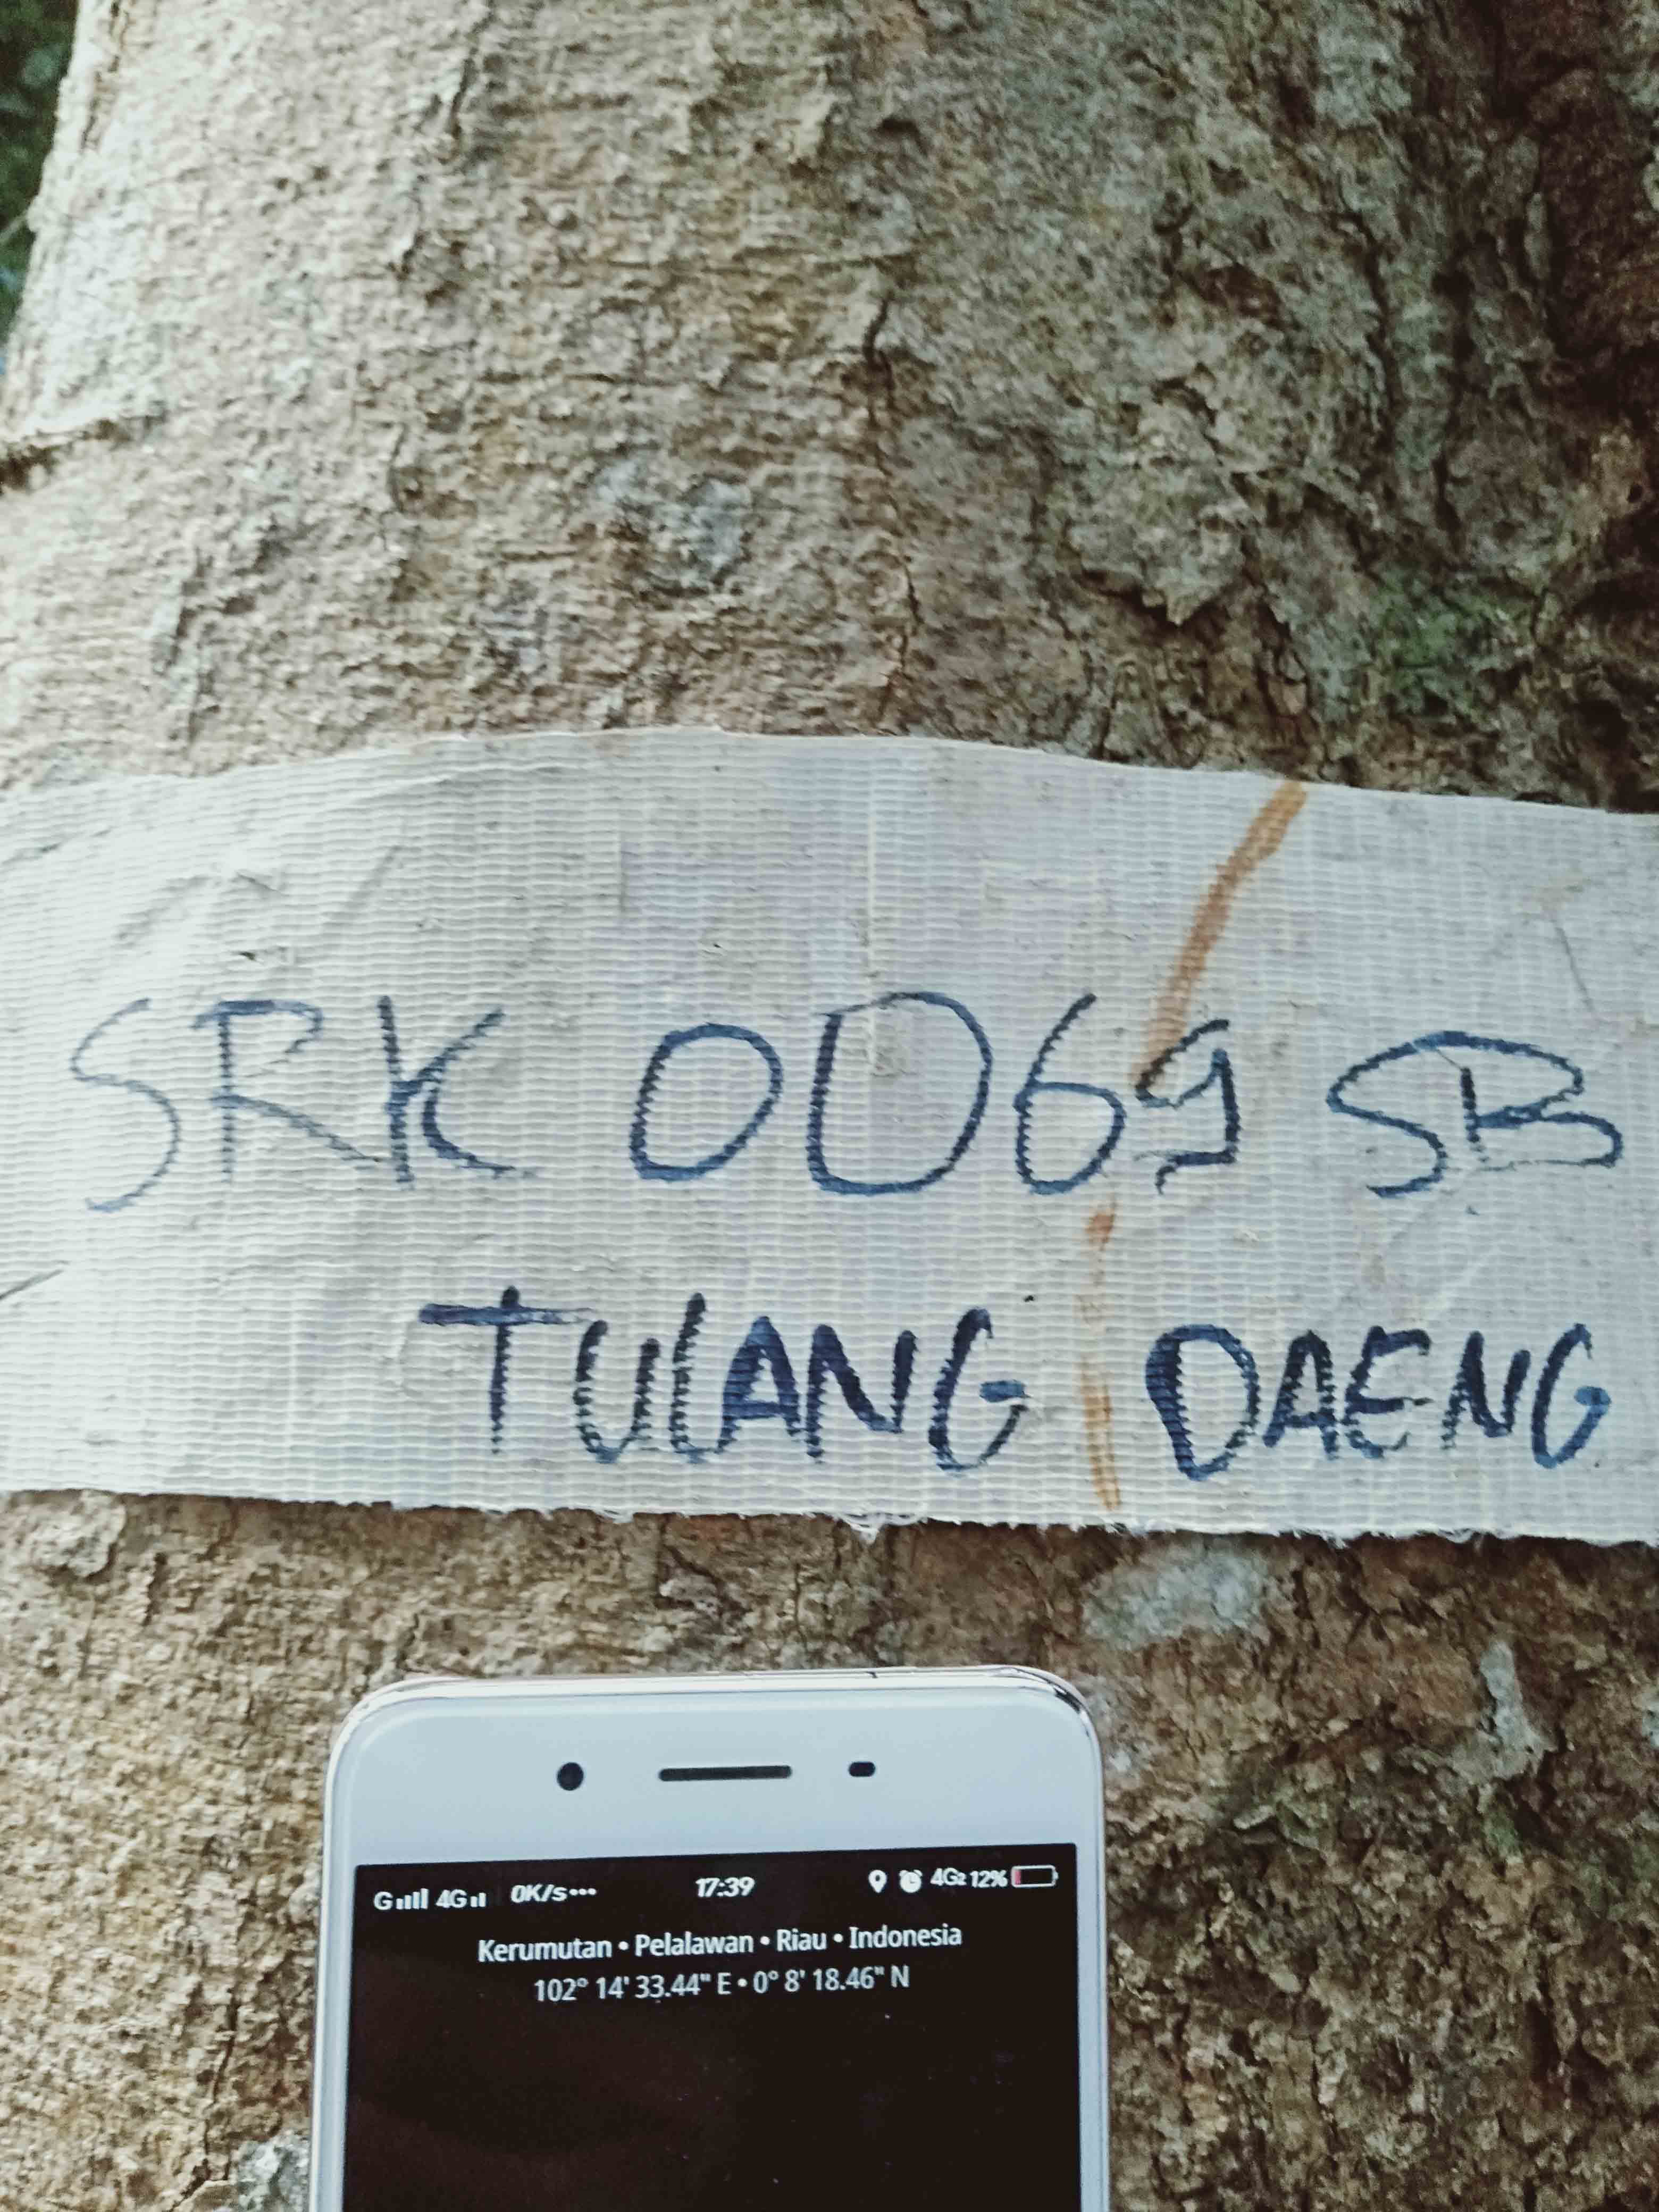 SRK 0069 SB
TULANG DAENG
G 4G 0K/s... 17:39 4G2 12%
Kerumutan • Pelalawan • Riau • Indonesia
102° 14' 33.44" E • 0° 8' 18.46" N